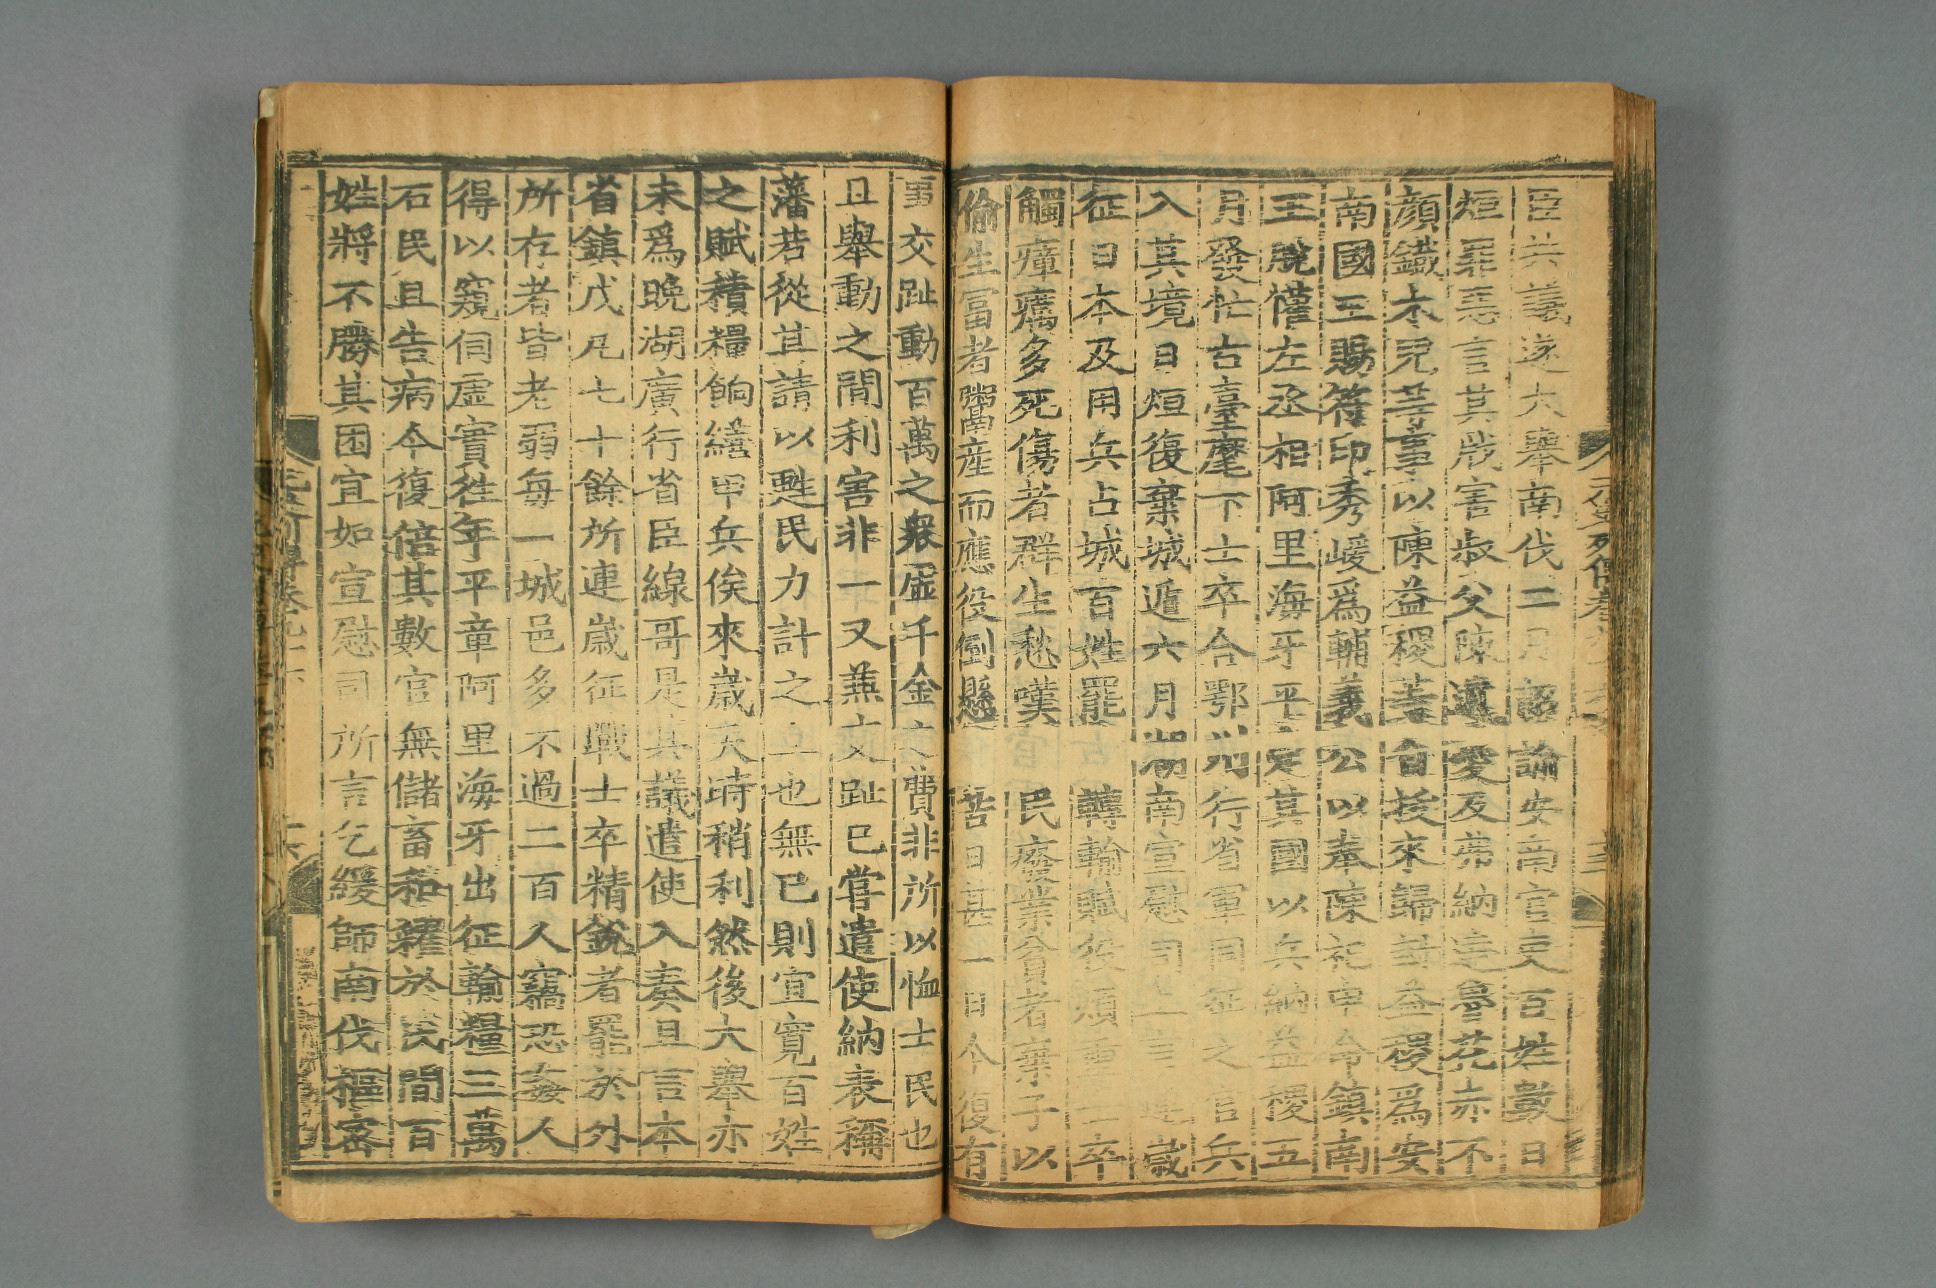 臣共議遂大舉南伐二月詔諭安南官吏百姓數日
烜罪惡言其戕害叔父陳遺愛及弗納達魯花赤不
顏鐵木兒等事以陳益稷等自拔來歸封益稷爲安
南國王賜符印秀嵈爲輔義公以奉陳祀申命鎮南
王脫懽左丞相阿里海牙平定其國以兵納益稷五
月發忙古臺麾下士卒合鄂州行省軍同征之官兵
入其境日烜復棄城遁六月湖南宣慰司上言連歲
征日本及用兵占城百姓罷於轉輸賦役煩重士卒
觸瘴癘多死傷者群生愁嘆四民廢業貧者棄子以
偷生富者鬻産而應役倒懸之苦日甚一日今復有
事交趾動百萬之衆虛千金之費非所以恤士民也
且舉動之間利害非一又兼交趾已嘗遣使納表稱
藩若從其請以甦民力計之上也無已則宜寛百姓
之賦積糧餉繕甲兵俟來歲天時稍利然後大舉亦
未爲晚湖廣行省臣線哥是其議遣使入奏且言本
省鎮戍凡七十餘所連歲征戰士卒精銳者罷於外
所存者皆老弱每一城邑多不過二百人竊恐姦人
得以窺伺虛實徃年平章阿里海牙出征輸糧三萬
石民且告病今復倍其數官無儲畜和糴於民間百
姓將不勝其困宜如宣慰司所言乞緩師南伐樞密